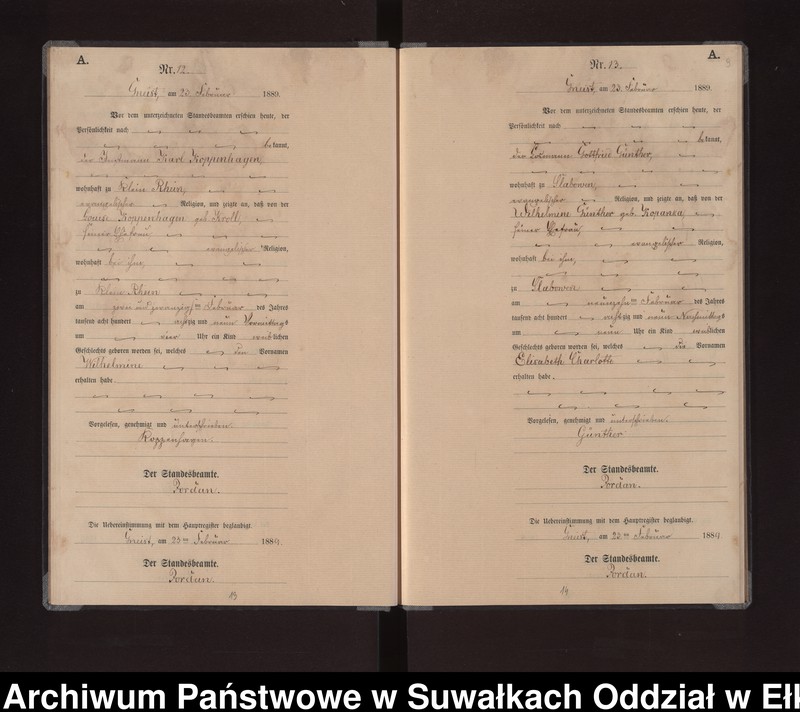 A.
Nr. 12.
Gneist, am 23 Februar 1889.
Vor dem unterzeichneten Standesbeamten erschien heute, der
Persönlichkeit nach
bekannt,
der Karl Koppenhagen,
wohnhaft zu Klein Rhein,
evangelischer Religion, und zeigte an, daß von der
Louise Koppenhagen geb. Kroll,
seiner Ehefrau,
evangelischer Religion,
wohnhaft bei ihm,
zu Klein Rhein
am zwei und zwanzigsten Februar des Jahres
tausend acht hundert achtzig und neun Vormittags
um vier Uhr ein Kind weiblichen
Geschlechts geboren worden sei, welches den Vornamen
Wilhelmine
erhalten habe.
Vorgelesen, genehmigt und unterschrieben.
Koppenhagen.
Der Standesbeamte.
Jordan.
Die Uebereinstimmung mit dem Hauptregister beglaubigt.
Gneist, am 23ten Februar 1889.
Der Standesbeamte.
Jordan.
13
A.
Nr. 13.
Gneist, am 23. Februar 1889.
Vor dem unterzeichneten Standesbeamten erschien heute, der
Persönlichkeit nach
bekannt,
der Gottfried Günther,
wohnhaft zu Slabowen,
evangelischer Religion, und zeigte an, daß von der
Wilhelmine Günther geb. Kopanka,
seiner Ehefrau,
evangelischer Religion,
wohnhaft bei ihm,
zu Slabowen
am neunzehnten Februar des Jahres
tausend acht hundert achtzig und neun Nachmittags
um neun Uhr ein Kind weiblichen
Geschlechts geboren worden sei, welches die Vornamen
Elisabeth Charlotte
erhalten habe.
Vorgelesen, genehmigt und unterschrieben.
Günther
Der Standesbeamte.
Jordan.
Die Uebereinstimmung mit dem Hauptregister beglaubigt.
Gneist, am 23ten Februar 1889
Der Standesbeamte.
Jordan.
14
Archiwum Państwowe w Suwałkach Oddział w Ełk